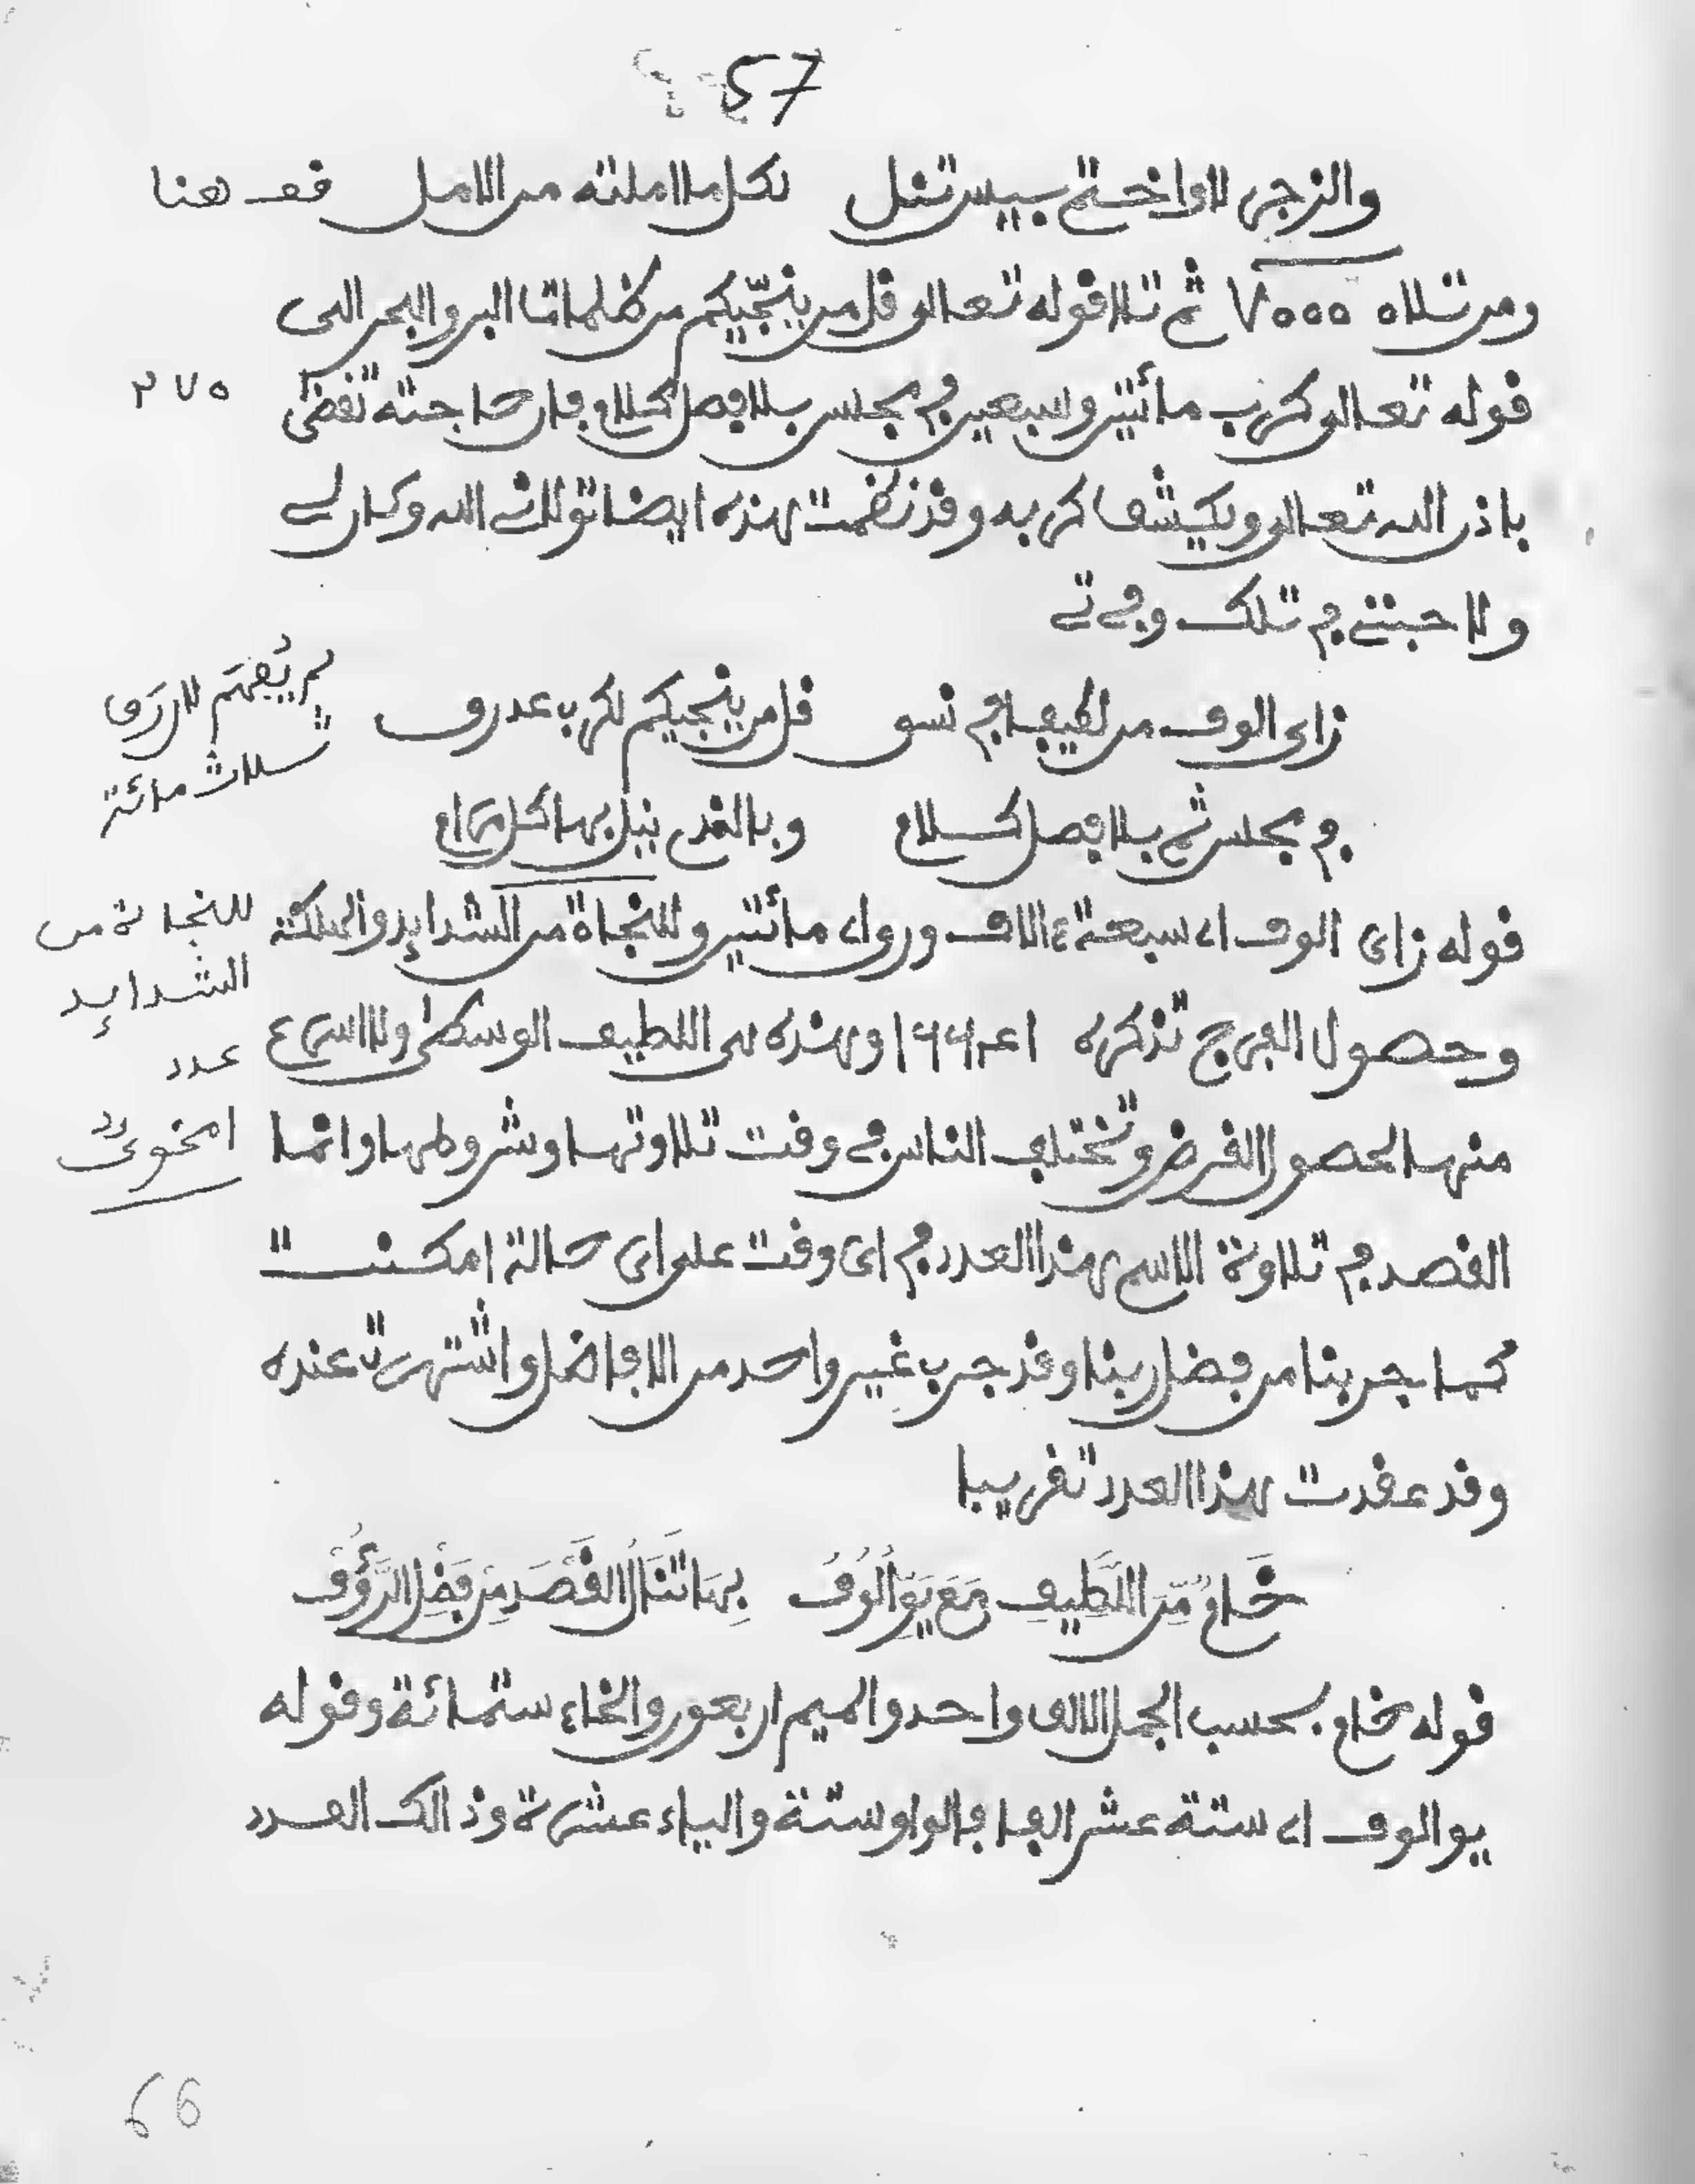 57
والزجر لاوا ختم بيس تنل لكل ما املته من الامل قف هنا
ومن تلاه ٧٠٠٠ ثم تلا قوله تعالى قل من ينجيكم من ظلمات البر والبحر الى
قوله تعالى كرب مائتين وسبعين في مجلس بلا فصل كلام فان حاجته تقضى ٢٧٠
باذن الله تعالى ويكشف كربه وقد نظمت هذه ايضا تولانى الله وكان لے
ولاحبتے في تلك وفے تے
زاى الوف من لطيف في نسق قل من ينجيكم لكرب عد رق
لم يفهم لان رق
ثلاث مائة
في مجلس ثم بلا فصل كلام وبالغد نيل بها كل مرام
قوله زاى الوف اى سبعة ءالاف وروا مائتين وللنجاة من الشدايد والهلكة
للنجاة من
الشدايد
وحصول الفرج تذكره ١٦٦٤١ وهذه هى اللطيف الوسطى ولا اسرع
عدد
منها لحصول الغرض وتختلف الناس فے وقت تلاوتها وشروطها وانما
القصد في تلاوة الاسم هذا العدد في اى وقت على اى حالة امكنت
كما جربنا من فضل ربنا وقد جرب غير واحد من الافاضل واشتهرت عنده
وقد عقدت هذا العدد تقريبا
خَامٌ مِّنَ اللَّطِيفِ مَعَ يَوْ أُلُوفُ بِهَا تَنَالُ الْقَصْدَ مِن فَضْلِ الرَّؤُفْ
قوله خام بحسب الجمل الالف واحد والميم اربعون والخاء ستمائة وقوله
يو الوف اى ستة عشر الفا فالواو ستة والياء عشرة وذالك العدد
66